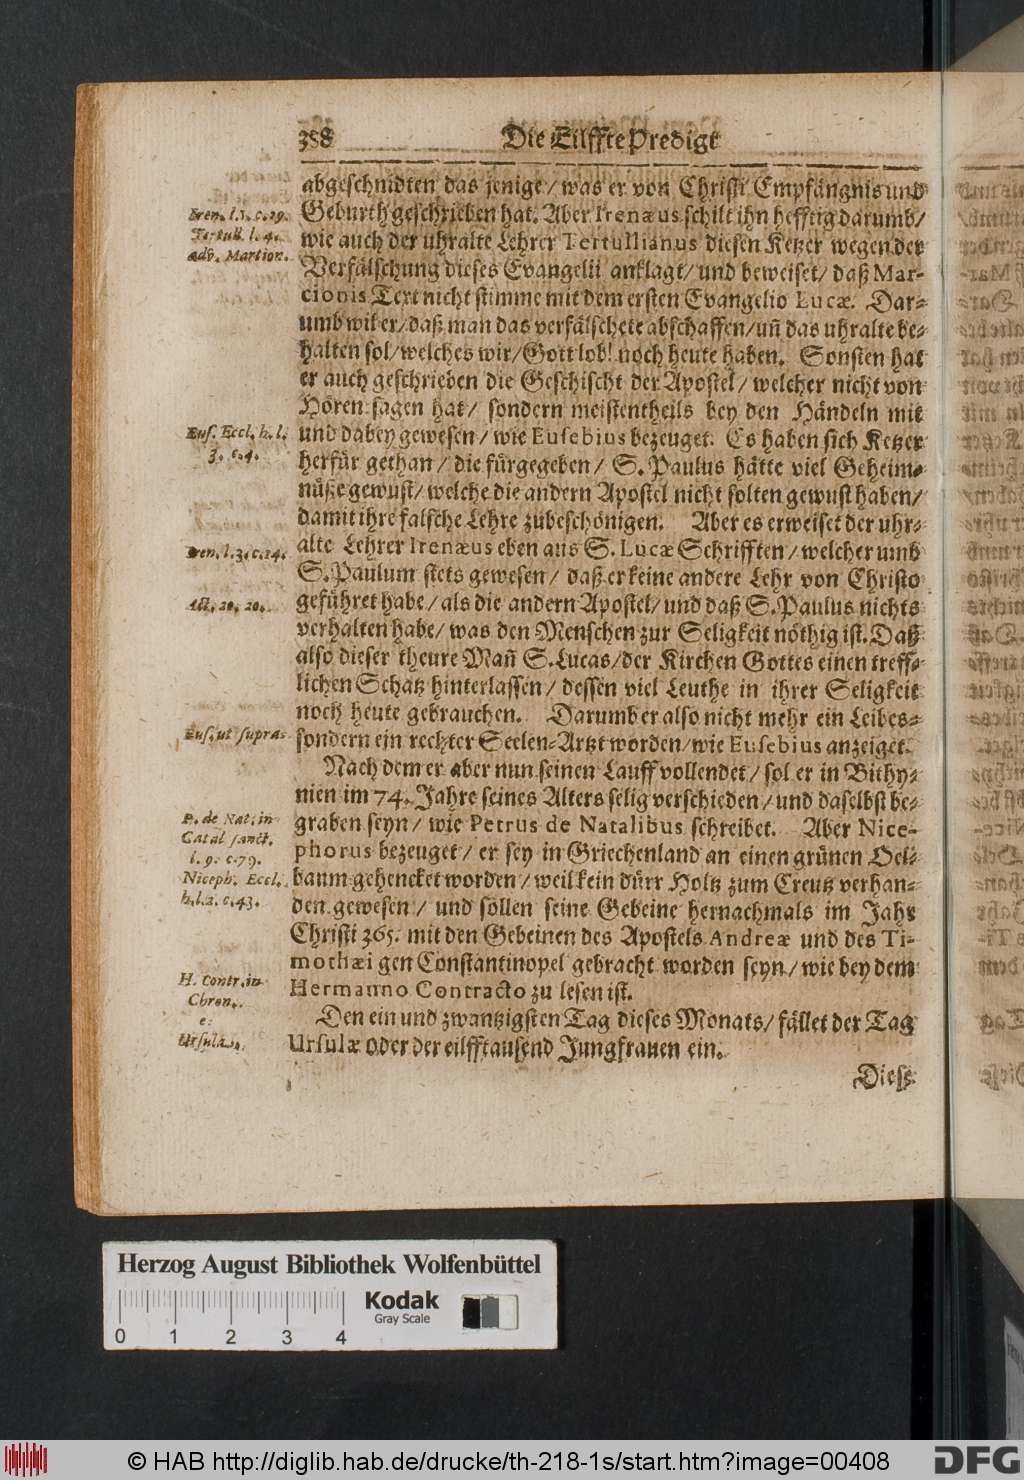 358 Die Eilffte Predigt
abgeschnidten das jenige / was er von Christi Empfängnis und
Iren. l. 1. c. 29. Geburth geschrieben hat. Aber Irenæus schilt ihn hefftig darumb /
Tertull. l. 4. wie auch der uhralte Lehrer Tertullianus diesen Ketzer wegen der
adv. Martion. Verfälschung dieses Evangelii anklagt / und beweiset / daß Mar-
cionis Text nicht stimme mit dem ersten Evangelio Lucæ. Dar-
umb wil er / daß man das verfälschete abschaffen / uñ das uhralte be-
halten sol / welches wir / Gott lob! noch heute haben. Sonsten hat
er auch geschrieben die Geschischt der Apostel / welcher nicht von
Hören sagen hat / sondern meistentheils bey den Händeln mit
Eus. Eccl. h. l. und dabey gewesen / wie Eusebius bezeuget. Es haben sich Ketzer
3. c. 4. herfür gethan / die fürgegeben / S. Paulus hätte viel Geheim-
nüße gewust / welche die andern Apostel nicht solten gewust haben /
damit ihre falsche Lehre zubeschönigen. Aber es erweiset der uhr-
Iren. l. 3. c. 14. alte Lehrer Irenæus eben aus S. Lucæ Schrifften / welcher umb
S. Paulum stets gewesen / daß er keine andere Lehr von Christo
Act. 20, 20. geführet habe / als die andern Apostel / und daß S. Paulus nichts
verhalten habe / was den Menschen zur Seligkeit nöthig ist. Daß
also dieser theure Mañ S. Lucas / der Kirchen Gottes einen treff-
lichen Schatz hinterlassen / dessen viel Leuthe in ihrer Seligkeit
noch heute gebrauchen. Darumb er also nicht mehr ein Leibes-
Eus. ut supra. sondern ein rechter Seelen-Artzt worden / wie Eusebius anzeiget.
Nach dem er aber nun seinen Lauff vollendet / sol er in Bithy-
nien im 74. Jahre seines Alters selig verschieden / und daselbst be-
P. de Nat. in graben seyn / wie Petrus de Natalibus schreibet. Aber Nice-
Catal sanct.
l. 9. c. 79. phorus bezeuget / er sey in Griechenland an einen grünen Oel-
Niceph. Eccl. baum gehencket worden / weil kein dürr Holtz zum Creutz verhan-
h. l. 2. c. 43. den gewesen / und sollen seine Gebeine hernachmals im Jahr
Christi 365. mit den Gebeinen des Apostels Andreæ und des Ti-
mothæi gen Constantinopel gebracht worden seyn / wie bey dem
H. Contr. in Hermanno Contracto zu lesen ist.
Chron.
e. Den ein und zwantzigsten Tag dieses Monats / fället der Tag
Ursula. Ursulæ oder der eilfftausend Jungfrauen ein.
Diese
Herzog August Bibliothek Wolfenbüttel
Kodak
Gray Scale
0 1 2 3 4
© HAB http://diglib.hab.de/drucke/th-218-1s/start.htm?image=00408
DFG